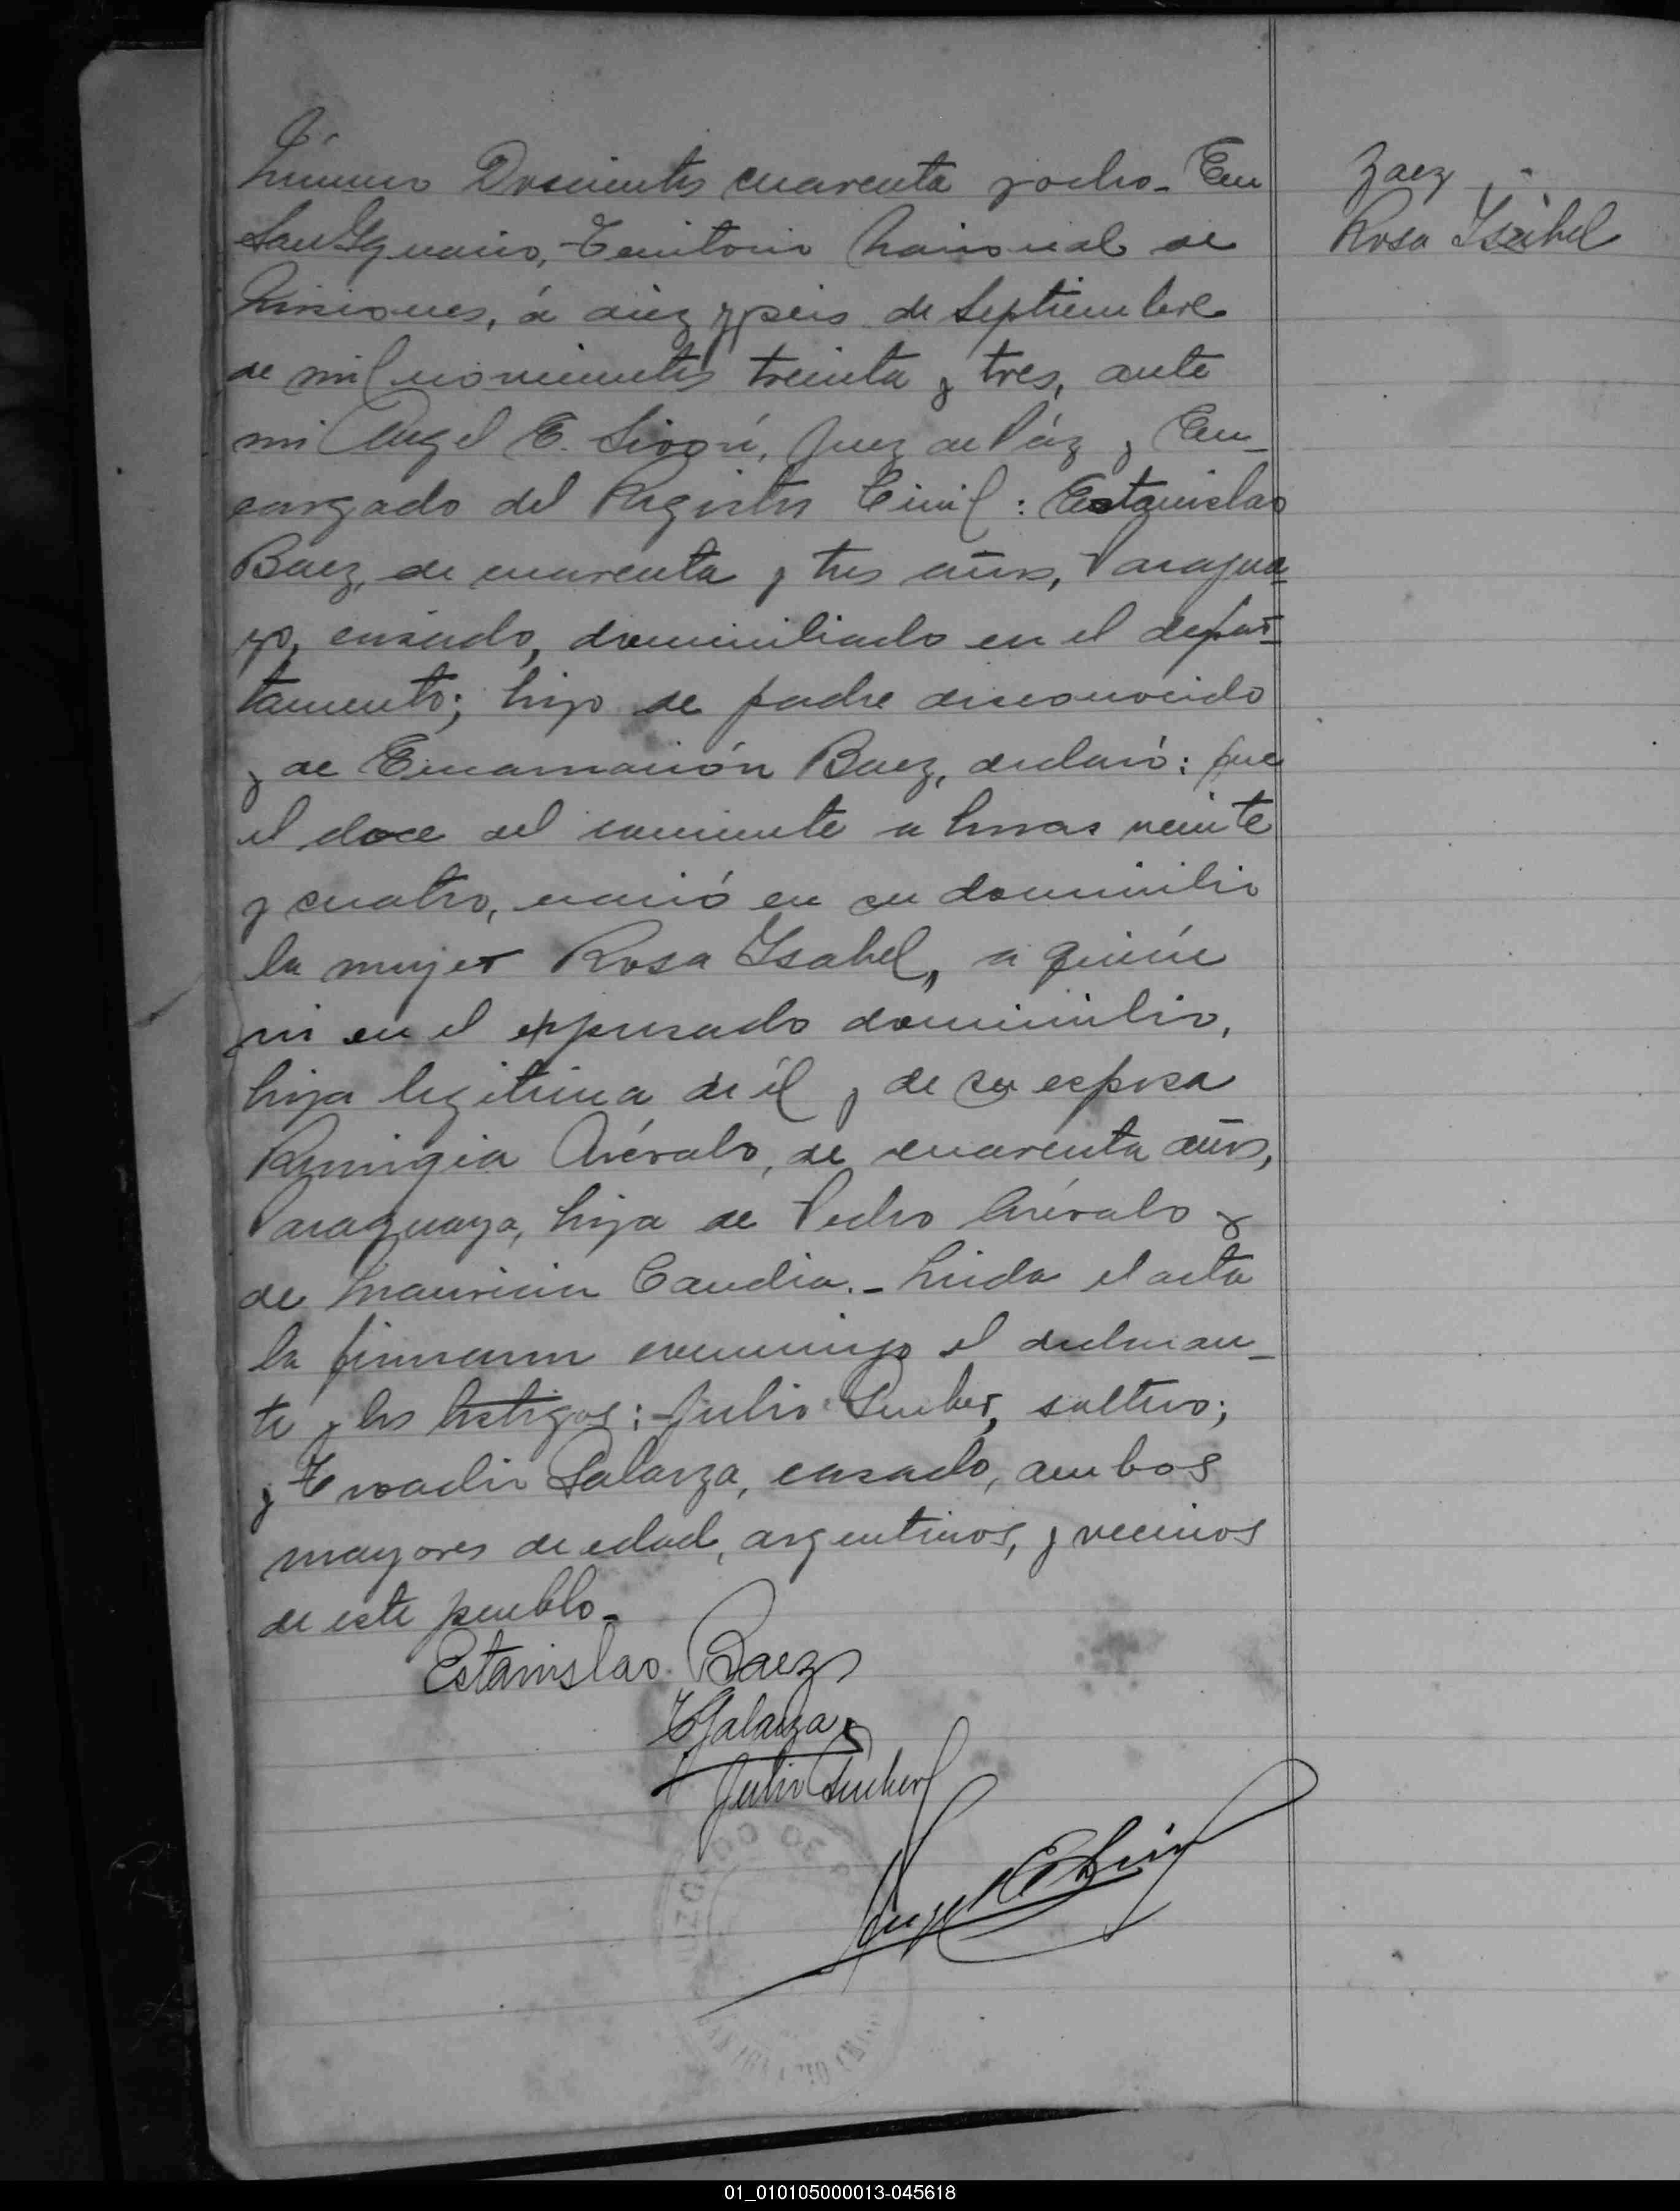 Número Doscientos cuarenta y ocho_ En
San Ygnacio, Territorio Nacional de
Misiones, á diez y seis de Septiembre
de mil novecientos treinta y tres, ante
mi Angel E. Juez de Páz y En_
cargado del Registro Civil: Estanislao
Baez, de cuarenta y tres años, Paragua_
yo, casado, domiciliado en el depar_
tamento; hijo de padre desconocido
y de Encarnación Baez, declaró: Que
el doce del corriente a horas veinte
y cuatro, nació en su domicilio
la mujer Rosa Ysabel, a quién
vi en el expresado domicilio,
hija legitima de él y de su esposa
Remigia Arévalo, de cuarenta años,
Paraguaya, hija de Pedro Arévalo y
de Mauricia Candia._ Leida el acta
la firmaron conmigo el declaran_
te y los testigos: Julio soltero;
y Galarza, casado, ambos
mayores de edad, argentinos, y vecinos
de este pueblo_
Estanislao Baez
Galarza
Julio
Angel E.
Baez
Rosa Ysabel
01_010105000013-045618